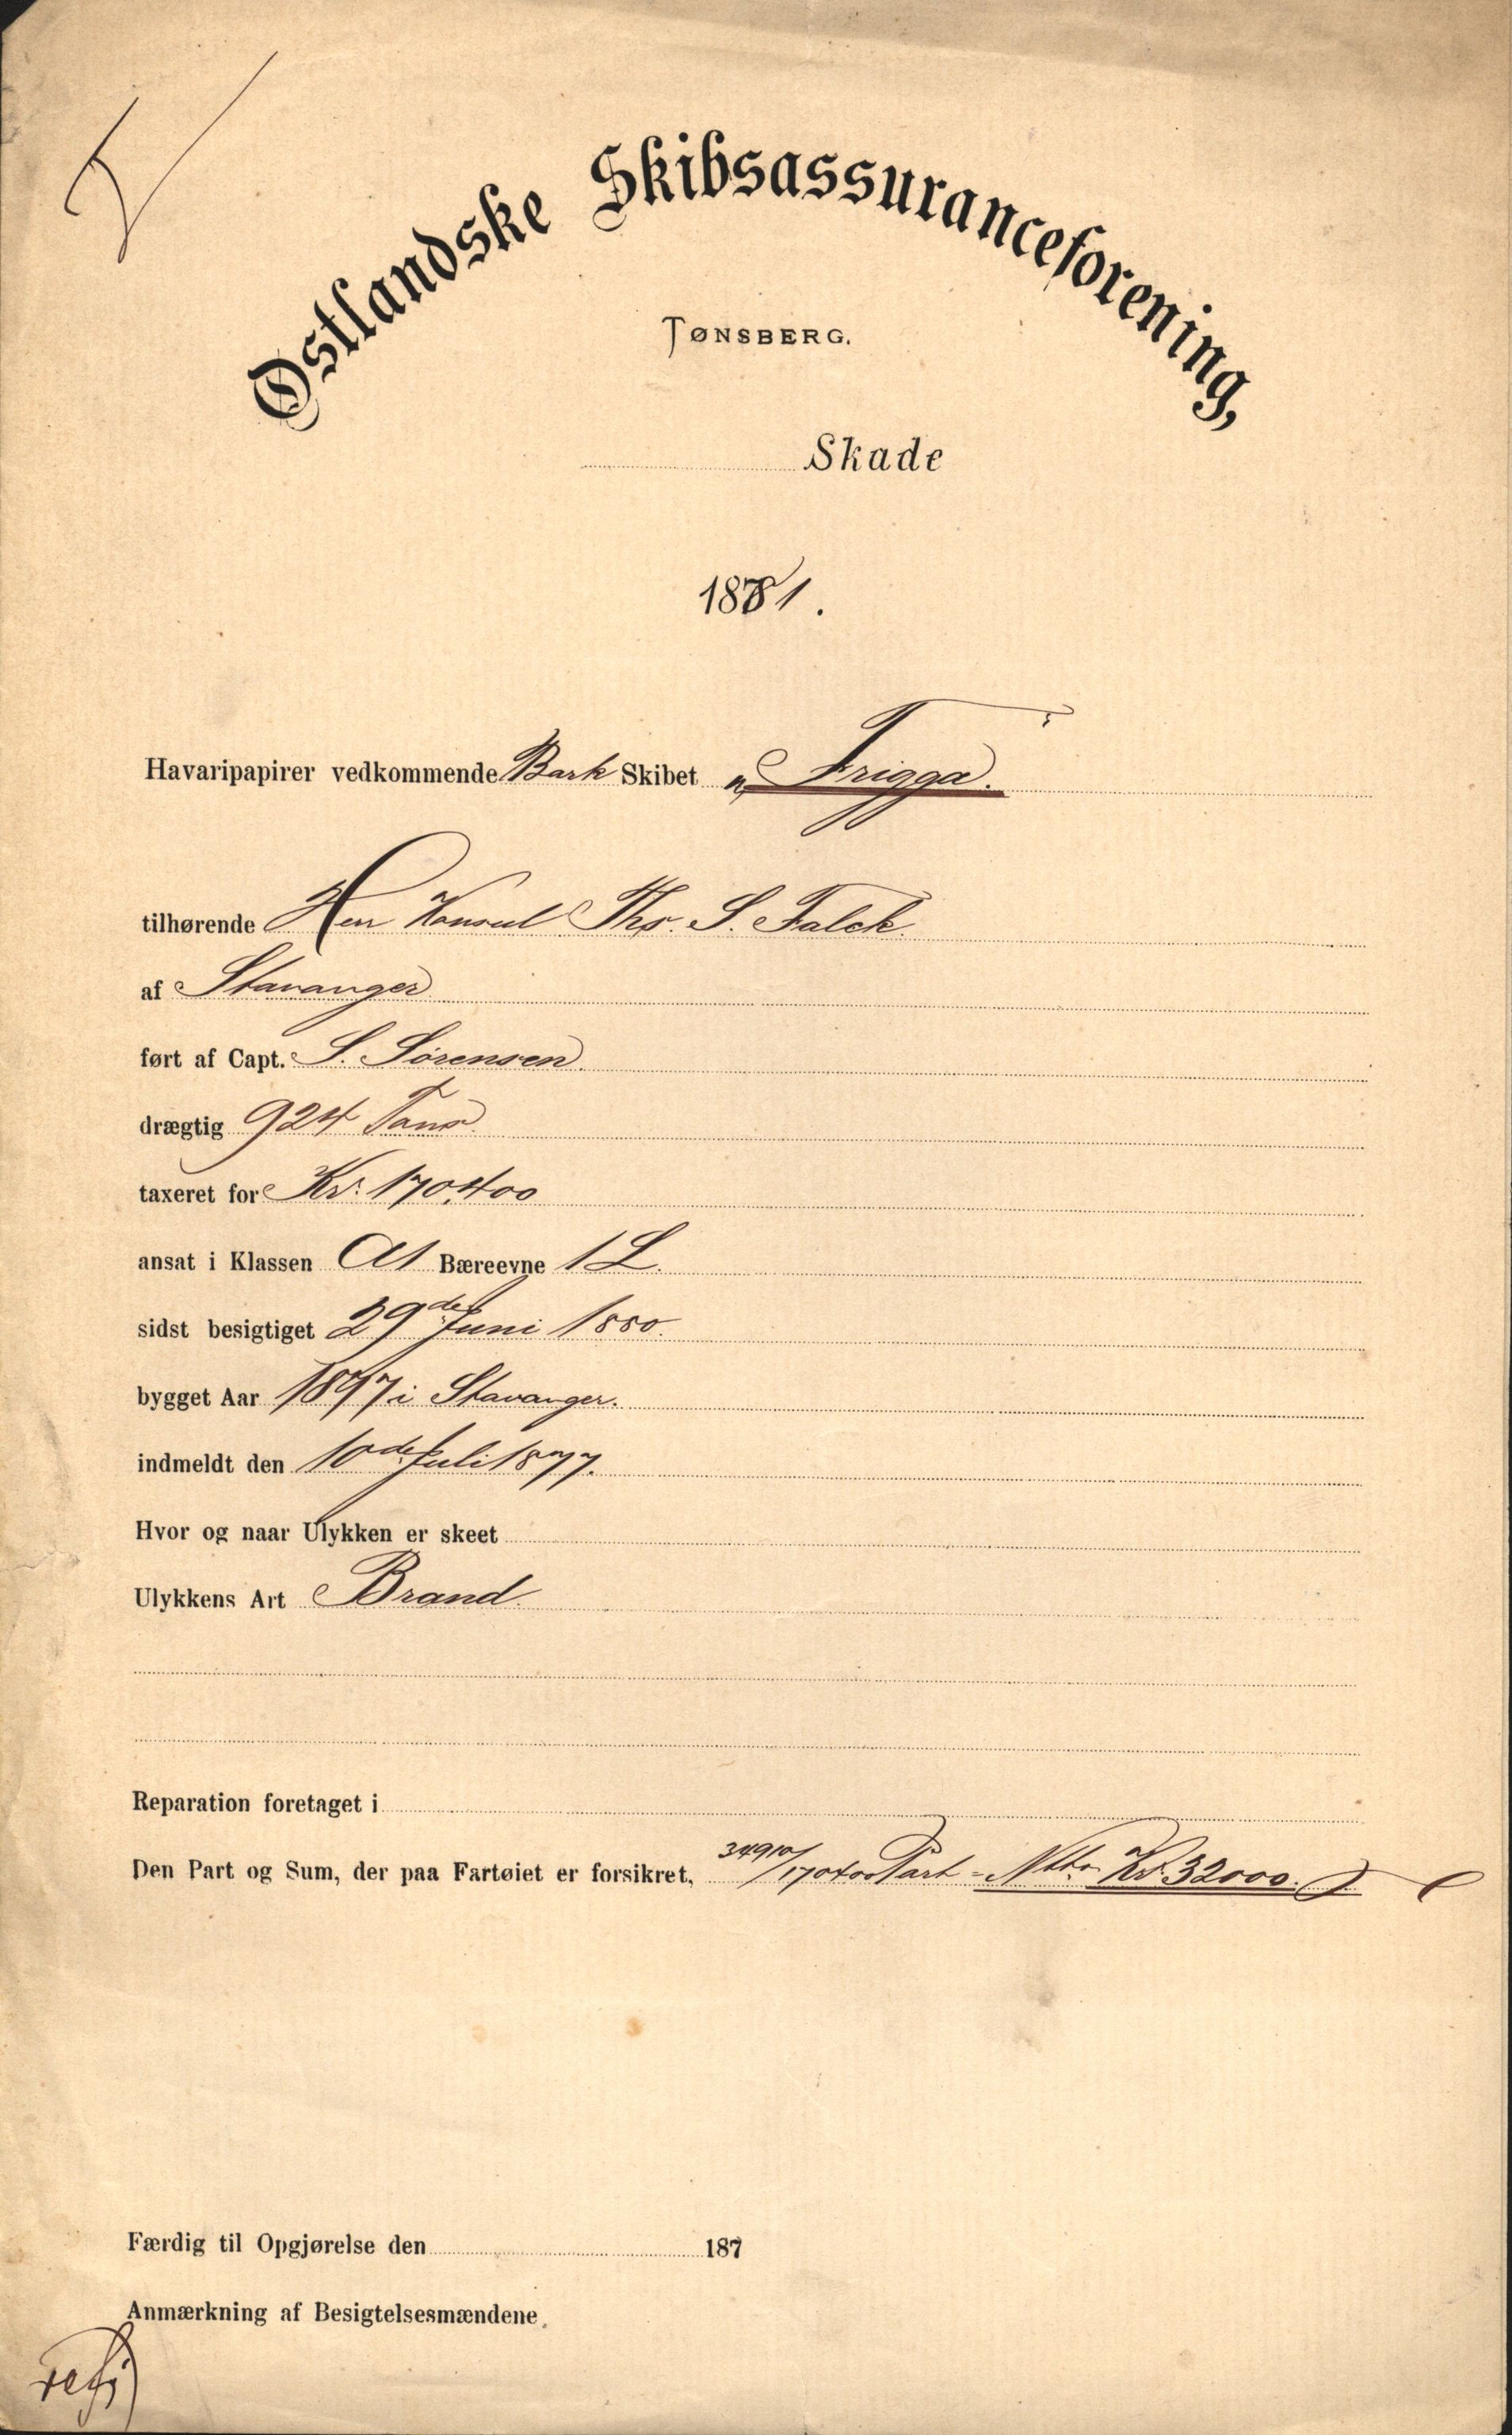 Østlandske Skibsassuranceforening,
TØNSBERG.
Skade
1881.
Havaripapirer vedkommende Bark Skibet „Frigga.
tilhørende Herr Konsul Ths. S. Falck.
af Stavanger
ført af Capt. S. Sørensen.
drægtig 924 Tons.
taxeret for Kr. 170,400
ansat i Klassen A1 Bæreevne 1 L.
sidst besigtiget 29de Juni 1880.
bygget Aar 1877 i Stavanger.
indmeldt den 10de Juli 1877.
Hvor og naar Ulykken er skeet
Ulykkens Art Brand.
Reparation foretaget i
Den Part og Sum, der paa Fartøiet er forsikret, 34910/170400 Part = Ntto Kr. 32000.
Færdig til Opgjørelse den 187
Anmærkning af Besigtelsesmændene.